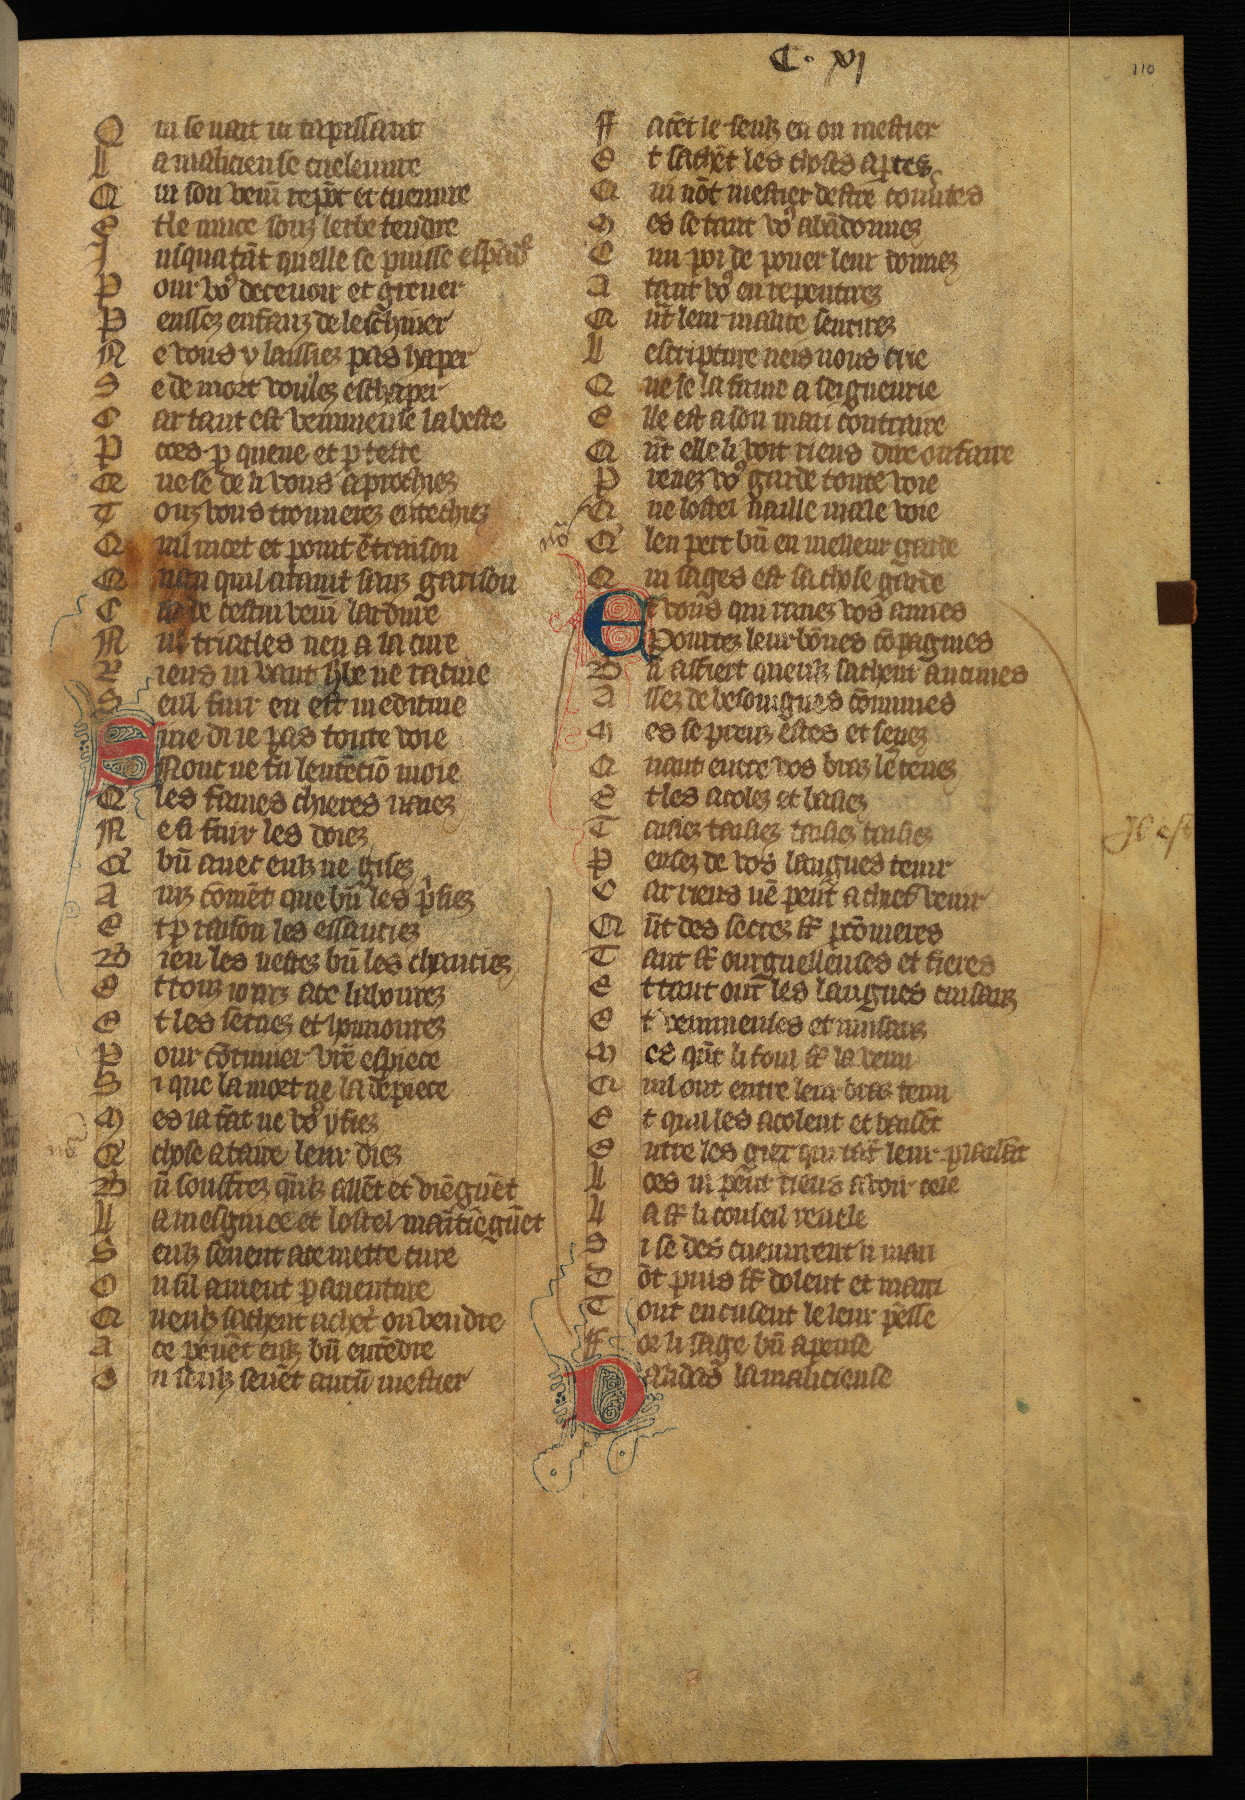 C. xj
110
Qui se vait ci tapissant
La malicieuse cueleuure
Qui son venī repōt et cueuure
Et le muce souz lerbe tendre
Jusqua tāt quelle le puisse espādre
Pour vꝰ deceuoir et greuer
Pensez enfanz de leschiuer
Ne vous y laissiez pas haper
Se de mort voulez eschaper
Car tant est venimeuse la beste
Par cors p queue et p teste
Que se de li vous aprochiez
Touz vous trouuerez entechiez
Quil mort et point ē traison
Quan quil ataint sanz garison
Car de cestui venī lardure
Nul triacles nen a la cure
Riens ni vaut hᵇe ne racine
Seul fuir en est medicine
Sine di ie pas toute voie
Nonc ne fu lentētiō moie
Q les fames chieres naiez
Ne si fuir les doiez
Q bn̄ auec eulz ne gisez
Ainz cōmēt que bn̄ les prisiez
Et p raison les essauciez
Bien les vestez bn̄ les chauciez
Et touz iours a ce labourez
Et les seruez et hounourez
Pour cōtinuer vr̄e espiece
Si que la mort ne la depiece
Mes ia tāt ne vꝰ y fiez
Q chose a taire leur diez
Bn̄ souffrez q̄lz aillēt et viēgnēt
La mesgniee et lostel maītiēgnēt
Seulz seuent a ce mettre cure
Ou sil auient p auenture
Quelz sachent achet' ou vendre
A ce peuēt eulz bn̄ entēdre
Ou selz seuēt aucū mestier
Facēt le selz en on mestier
Et sachēt les choses aptes
Qui nōt mestier destre couūtes
Mes se tant vꝰ abādonnez
Cun poi de pouer leur donnez
A tart vꝰ en repentirez
Qn̄t leur malice sentirez
Lescripture neis nous crie
Que se la fame a seigneurie
Elle est a son mari contraire
Qn̄t elle li voit riens dire ou faire
Prenez vꝰ garde toute voie
Que lostel naille male voie
Q len pert bn̄ en melleur garde
Qui sages est sa chose garde
Et vous qui auez vos amies
Portez leur bōnes cōpagnies
Bn̄ affiert quelz sachent aucunes
Assez de besoingnes cōmunes
Mes se preuz estes et senez
Quant entre vos braz le tenez
Et les acolez et baisiez
Taisiez taisiez taisiez taisiez
Pensez de vos langues tenir
Car riens nē peut a chief venir
Qn̄t des secrez sōt pconieres
Tant sōt ourguelleuses et fieres
Et tant ont les langues cuisanz
Et venimeuses et nuisanz
Mes qn̄t li foul sōt la venu
Quil ont entre leur bras tenu
Et quil les acolent et baisēt
Entre les giez qui tāt leur plaisēt
Lors ni peut riens auoir cele
La sōt li conseil reuele
Ci se descueuurent li mari
Dōt puis sōt dolent et mari
Tout encusent le leur pēsse
For li sage bn̄ apense
Dalidas la malicieuse